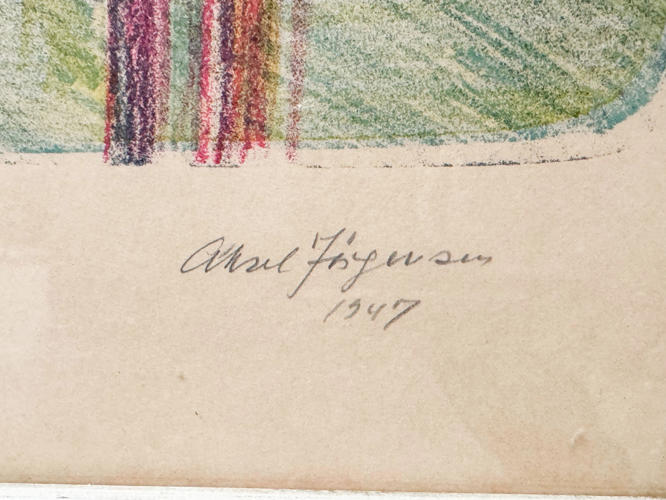 Aksel Jörgensen
1947